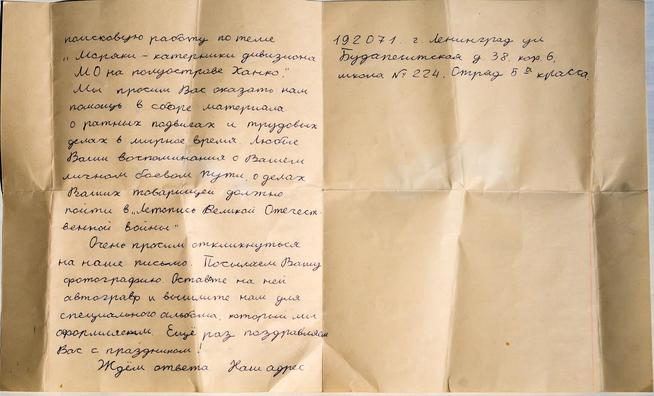 поисковую работу по теме
„Моряки - катерники дивизиона
МО на полуострове Ханко."
Мы просим Вас оказать нам
помощь в сборе материала
о ратных подвигах и трудовых
делах в мирное время. Любые
Ваши воспоминания о Вашем
личном боевом пути, о делах
Ваших товарищей должно
пойти в „Летопись Великой Отечест-
венной войны"
Очень просим откликнуться
на наше письмо. Посылаем Вашу
фотографию. Оставьте на ней
автограф и вышлите нам для
специального альбома, который мы
оформляем. Ещё раз поздравляем
Вас с праздником!
Ждём ответа Наш адрес
192071. г. Ленинград ул
Будапештская д. 38. кор. 6,
школа № 224. Отряд 5 а класса